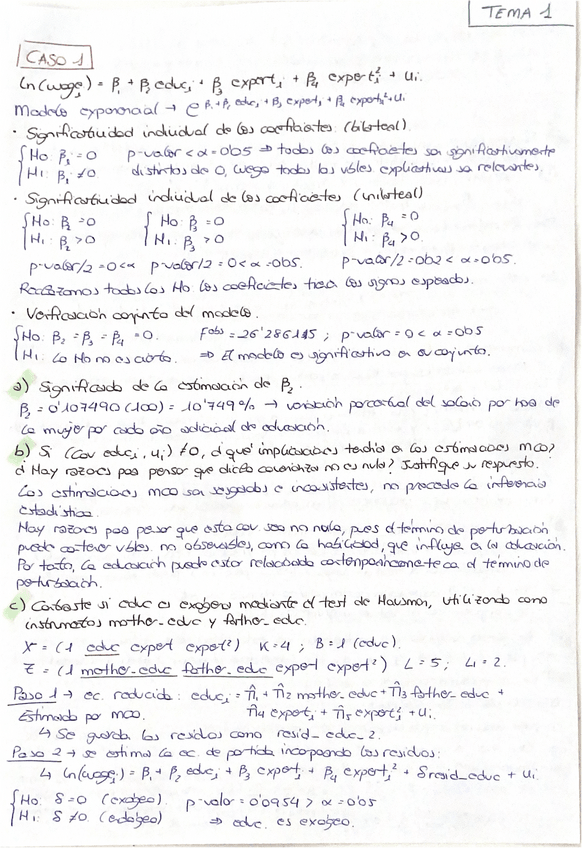 TEMA 1
CASO 1
ln(wageᵢ) = β₁ + β₂ educᵢ + β₃ experᵢ + β₄ experᵢ² + uᵢ
Modelo exponencial → e^β₁+β₂ educᵢ + β₃ experᵢ + β₄ experᵢ² + uᵢ
· Significatividad individual de los coeficientes (bilateral)
{H₀: βⱼ = 0 p-valor < α = 0'05 ⇒ todos los coeficientes son significativamente
H₁: βⱼ ≠ 0 distintos de 0, luego todas las vbles explicativas son relevantes.
· Significatividad individual de los coeficientes (unilateral)
{H₀: β₂ = 0 {H₀: β₃ = 0 {H₀: β₄ = 0
H₁: β₂ > 0 H₁: β₃ > 0 H₁: β₄ > 0.
p-valor/2 = 0 < α p-valor/2 = 0 < α = 0'05. p-valor/2 = 0'02 < α = 0'05.
Rechazamos todas las H₀. Los coeficientes tienen los signos esperados.
· Verificación conjunta del modelo.
{H₀: β₂ = β₃ = β₄ = 0. F obs = 26'286145 ; p-valor = 0 < α = 0'05
H₁: La H₀ no es cierta. ⇒ El modelo es significativo en su conjunto.
a) Significado de la estimación de β₂.
β₂ = 0'107490 (100) = 10'749% → variación porcentual del salario por hora de
la mujer por cada año adicional de educación.
b) Si (Cov educᵢ, uᵢ) ≠ 0, ¿qué implicaciones tendría en las estimaciones MCO?
¿Hay razones para pensar que dicha covarianza no es nula? Justifique su respuesta.
Las estimaciones MCO son sesgadas e inconsistentes, no procede la inferencia
estadística.
Hay razones para pensar que esta cov sea no nula, pues el término de perturbación
puede contener vbles. no observables, como la habilidad, que influye en la educación.
Por tanto, la educación puede estar relacionada contemporáneamente con el término de
perturbación.
c) Contraste si educ es exógena mediante el test de Hausman, utilizando como
instrumentos mother_educ y father_educ.
X = (1 educ exper exper²) K = 4 ; B = 1 (educ).
Z = (1 mother_educ father_educ exper exper²) L = 5 ; L₁ = 2.
Paso 1 → ec. reducida: educᵢ = π̂₁ + π̂₂ mother_educ + π̂₃ father_educ +
Estimada por MCO. π̂₄ experᵢ + π̂₅ experᵢ² + uᵢ
↳ Se guardan los residuos como resid_educ_2.
Paso 2 → se estima la ec. de partida incorporando los residuos:
↳ ln(wageᵢ) = β₁ + β₂ educᵢ + β₃ experᵢ + β₄ experᵢ² + δ resid_educ + uᵢ
{H₀: δ = 0 (exógeno). p-valor = 0'0954 > α = 0'05
H₁: δ ≠ 0 (endógeno) ⇒ educ. es exógeno.